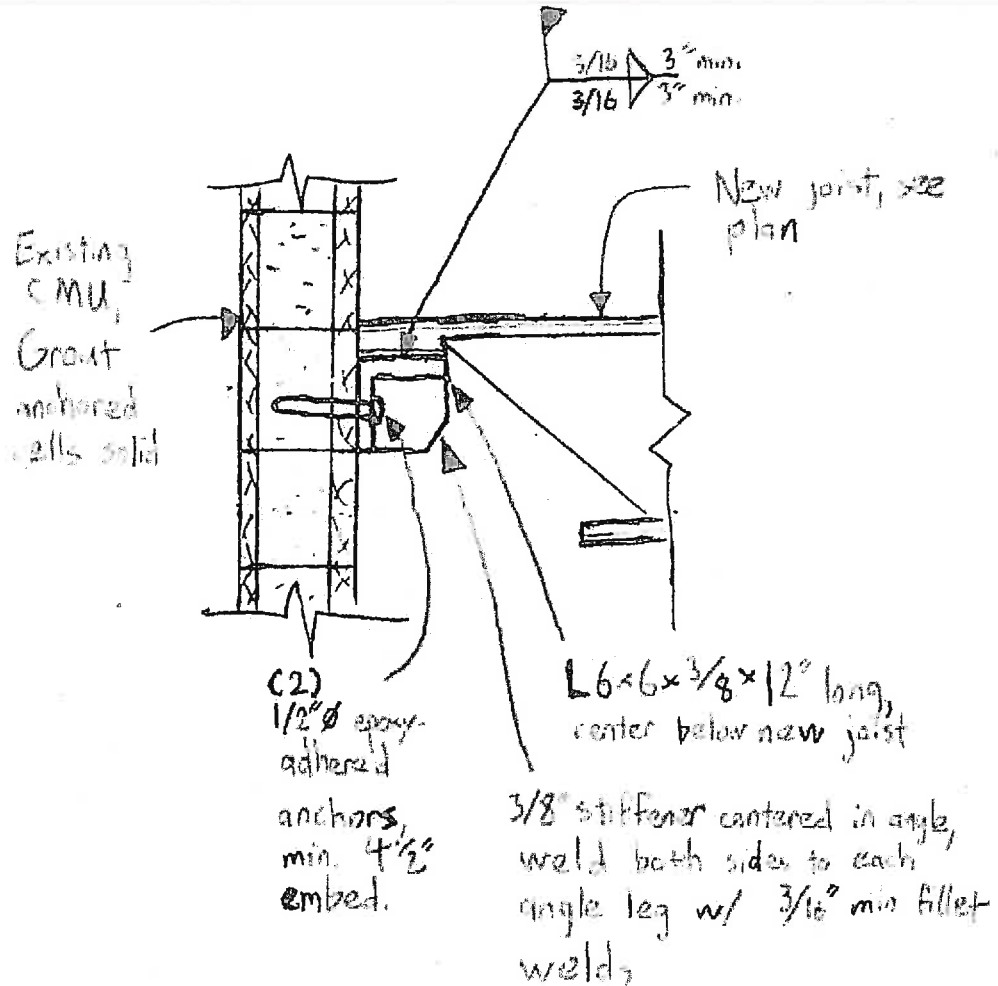 3/16 3" min.
3/16 3" min.
New joist, see
plan
Existing
CMU,
Grout
anchored
cells solid
(2)
1/2"ø epoxy-
adhered
anchors,
min. 4 1/2"
embed.
L6×6×3/8×12" long,
center below new joist
3/8" stiffener centered in angle,
weld both sides to each
angle leg w/ 3/16" min fillet
welds